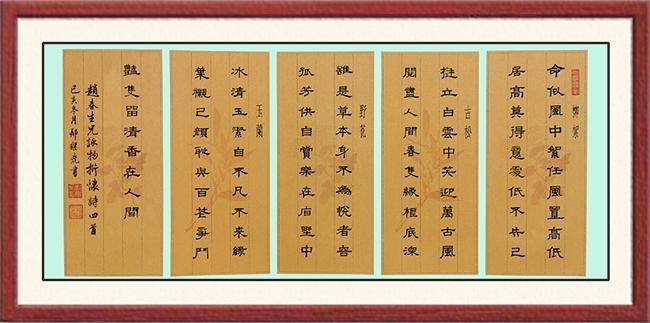 柳絮
命似風中絮任風置高低
居高莫得意處低不失己
古松
挺立白雲中笑迎萬古風
閱盡人間春隻緣根底深
野花
雖是草本身不為悅者容
孤芳供自賞樂在野中
玉蘭
冰清玉潔自不凡不求綠
葉襯己顏恥與百花爭鬥
豔隻留清香在人間
趙春生兄詠物抒懷詩四首
己亥冬月書